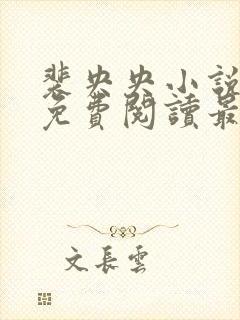 裴央央小說
免費閱讀最
文長雲